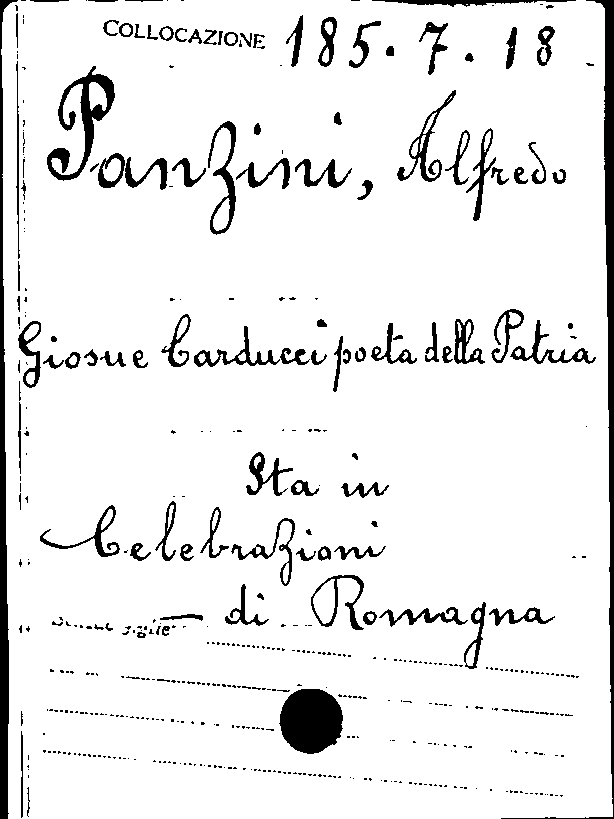 COLLOCAZIONE 185.7.18
Panzini, Alfredo
Giosue Carducci poeta della Patria
Sta in
Celebrazioni
di Romagna